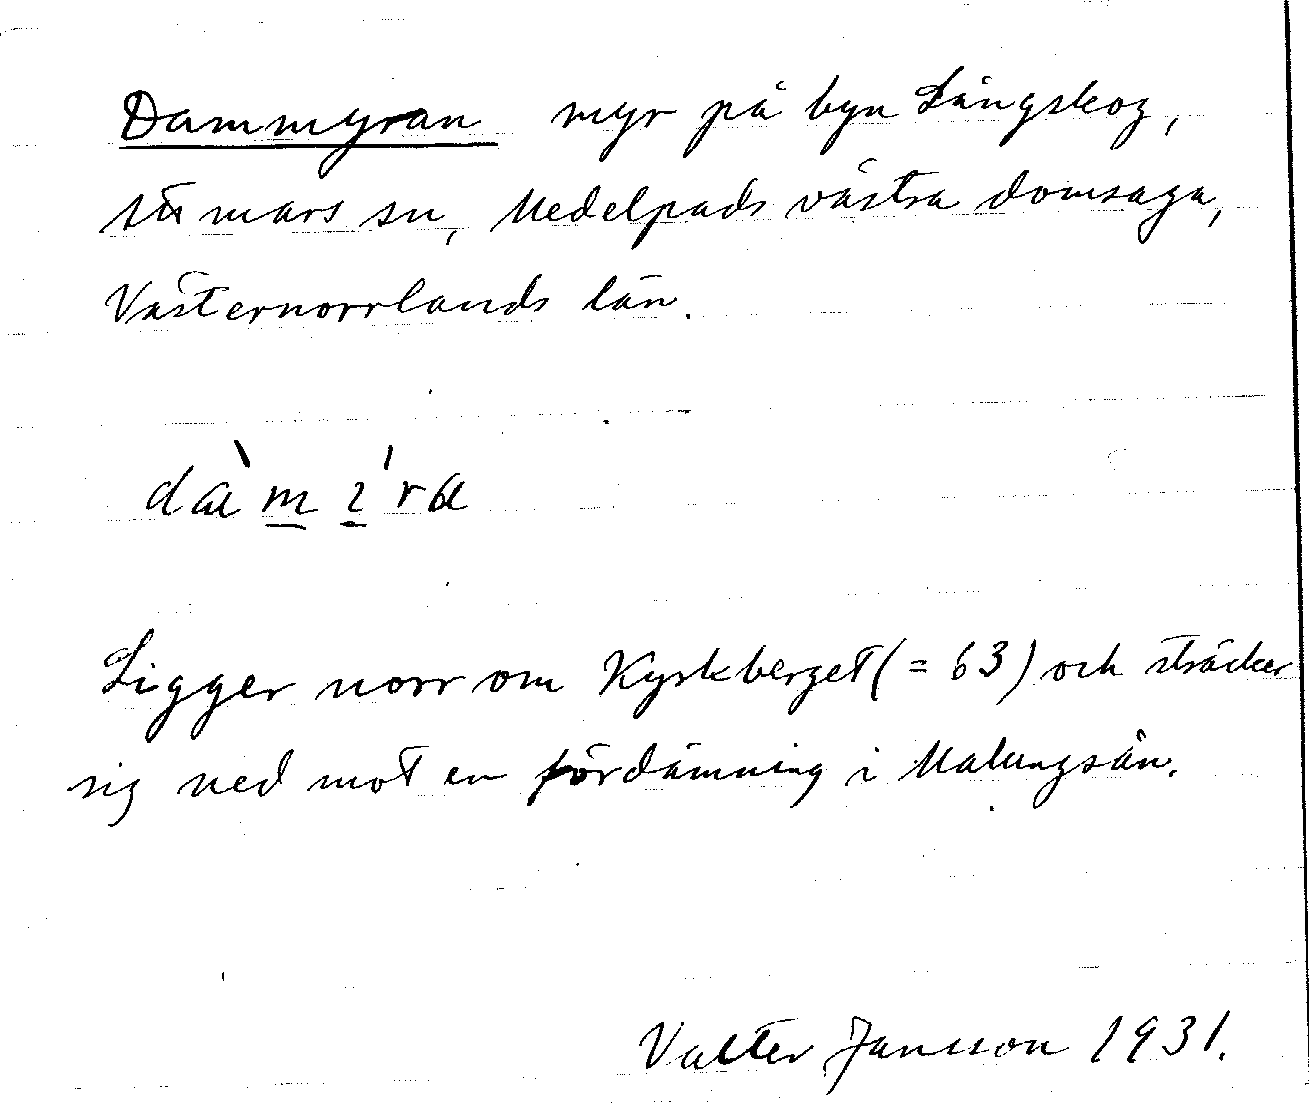 Dammyran myr på byn Långskog,
Stu mars sn, Medelpads västra domsaga,
Västernorrlands län.
Ligger norr om Kyrkberget (= 63) och sträcker
sig ned mot en fördämning i Malungsån.
Valter Jansson 1931.